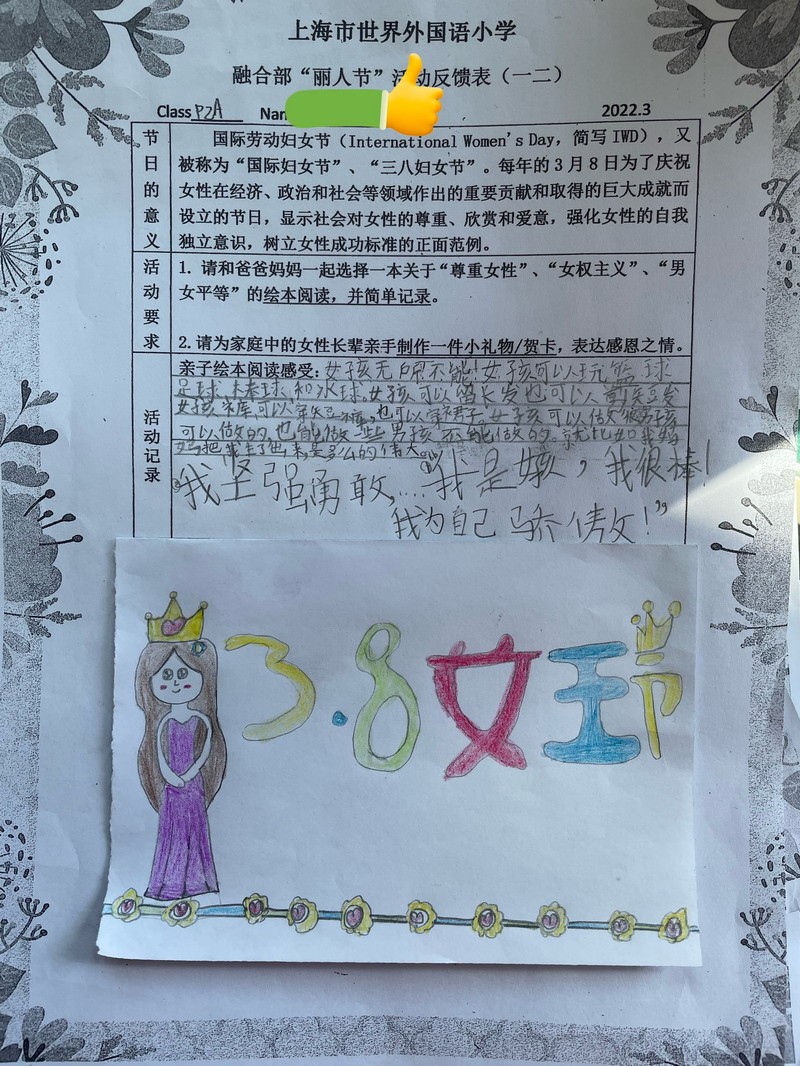 上海市世界外国语小学
融合部“丽人节”活动反馈表（一二）
Class P2A Nam 2022.3
节日的意义
国际劳动妇女节（International Women's Day，简写 IWD），又
被称为“国际妇女节”、“三八妇女节”。每年的 3 月 8 日为了庆祝
女性在经济、政治和社会等领域作出的重要贡献和取得的巨大成就而
设立的节日，显示社会对女性的尊重、欣赏和爱意，强化女性的自我
独立意识，树立女性成功标准的正面范例。
活动要求
1. 请和爸爸妈妈一起选择一本关于“尊重女性”、“女权主义”、“男
女平等”的绘本阅读，并简单记录。
2. 请为家庭中的女性长辈亲手制作一件小礼物/贺卡，表达感恩之情。
活动记录
亲子绘本阅读感受：女孩无所不能！女孩可以玩篮球
足球、棒球和水球。女孩可以留长发也可以剪短发
女孩可以穿短裤，也可以穿裙子。女孩可以做很多男孩
可以做的，也能做一些男孩不能做的。就比如我妈
妈把我生了出来，是多么的伟大。
“我坚强勇敢，...我是女孩，我很棒！
我为自己骄傲！”
3.8女王节